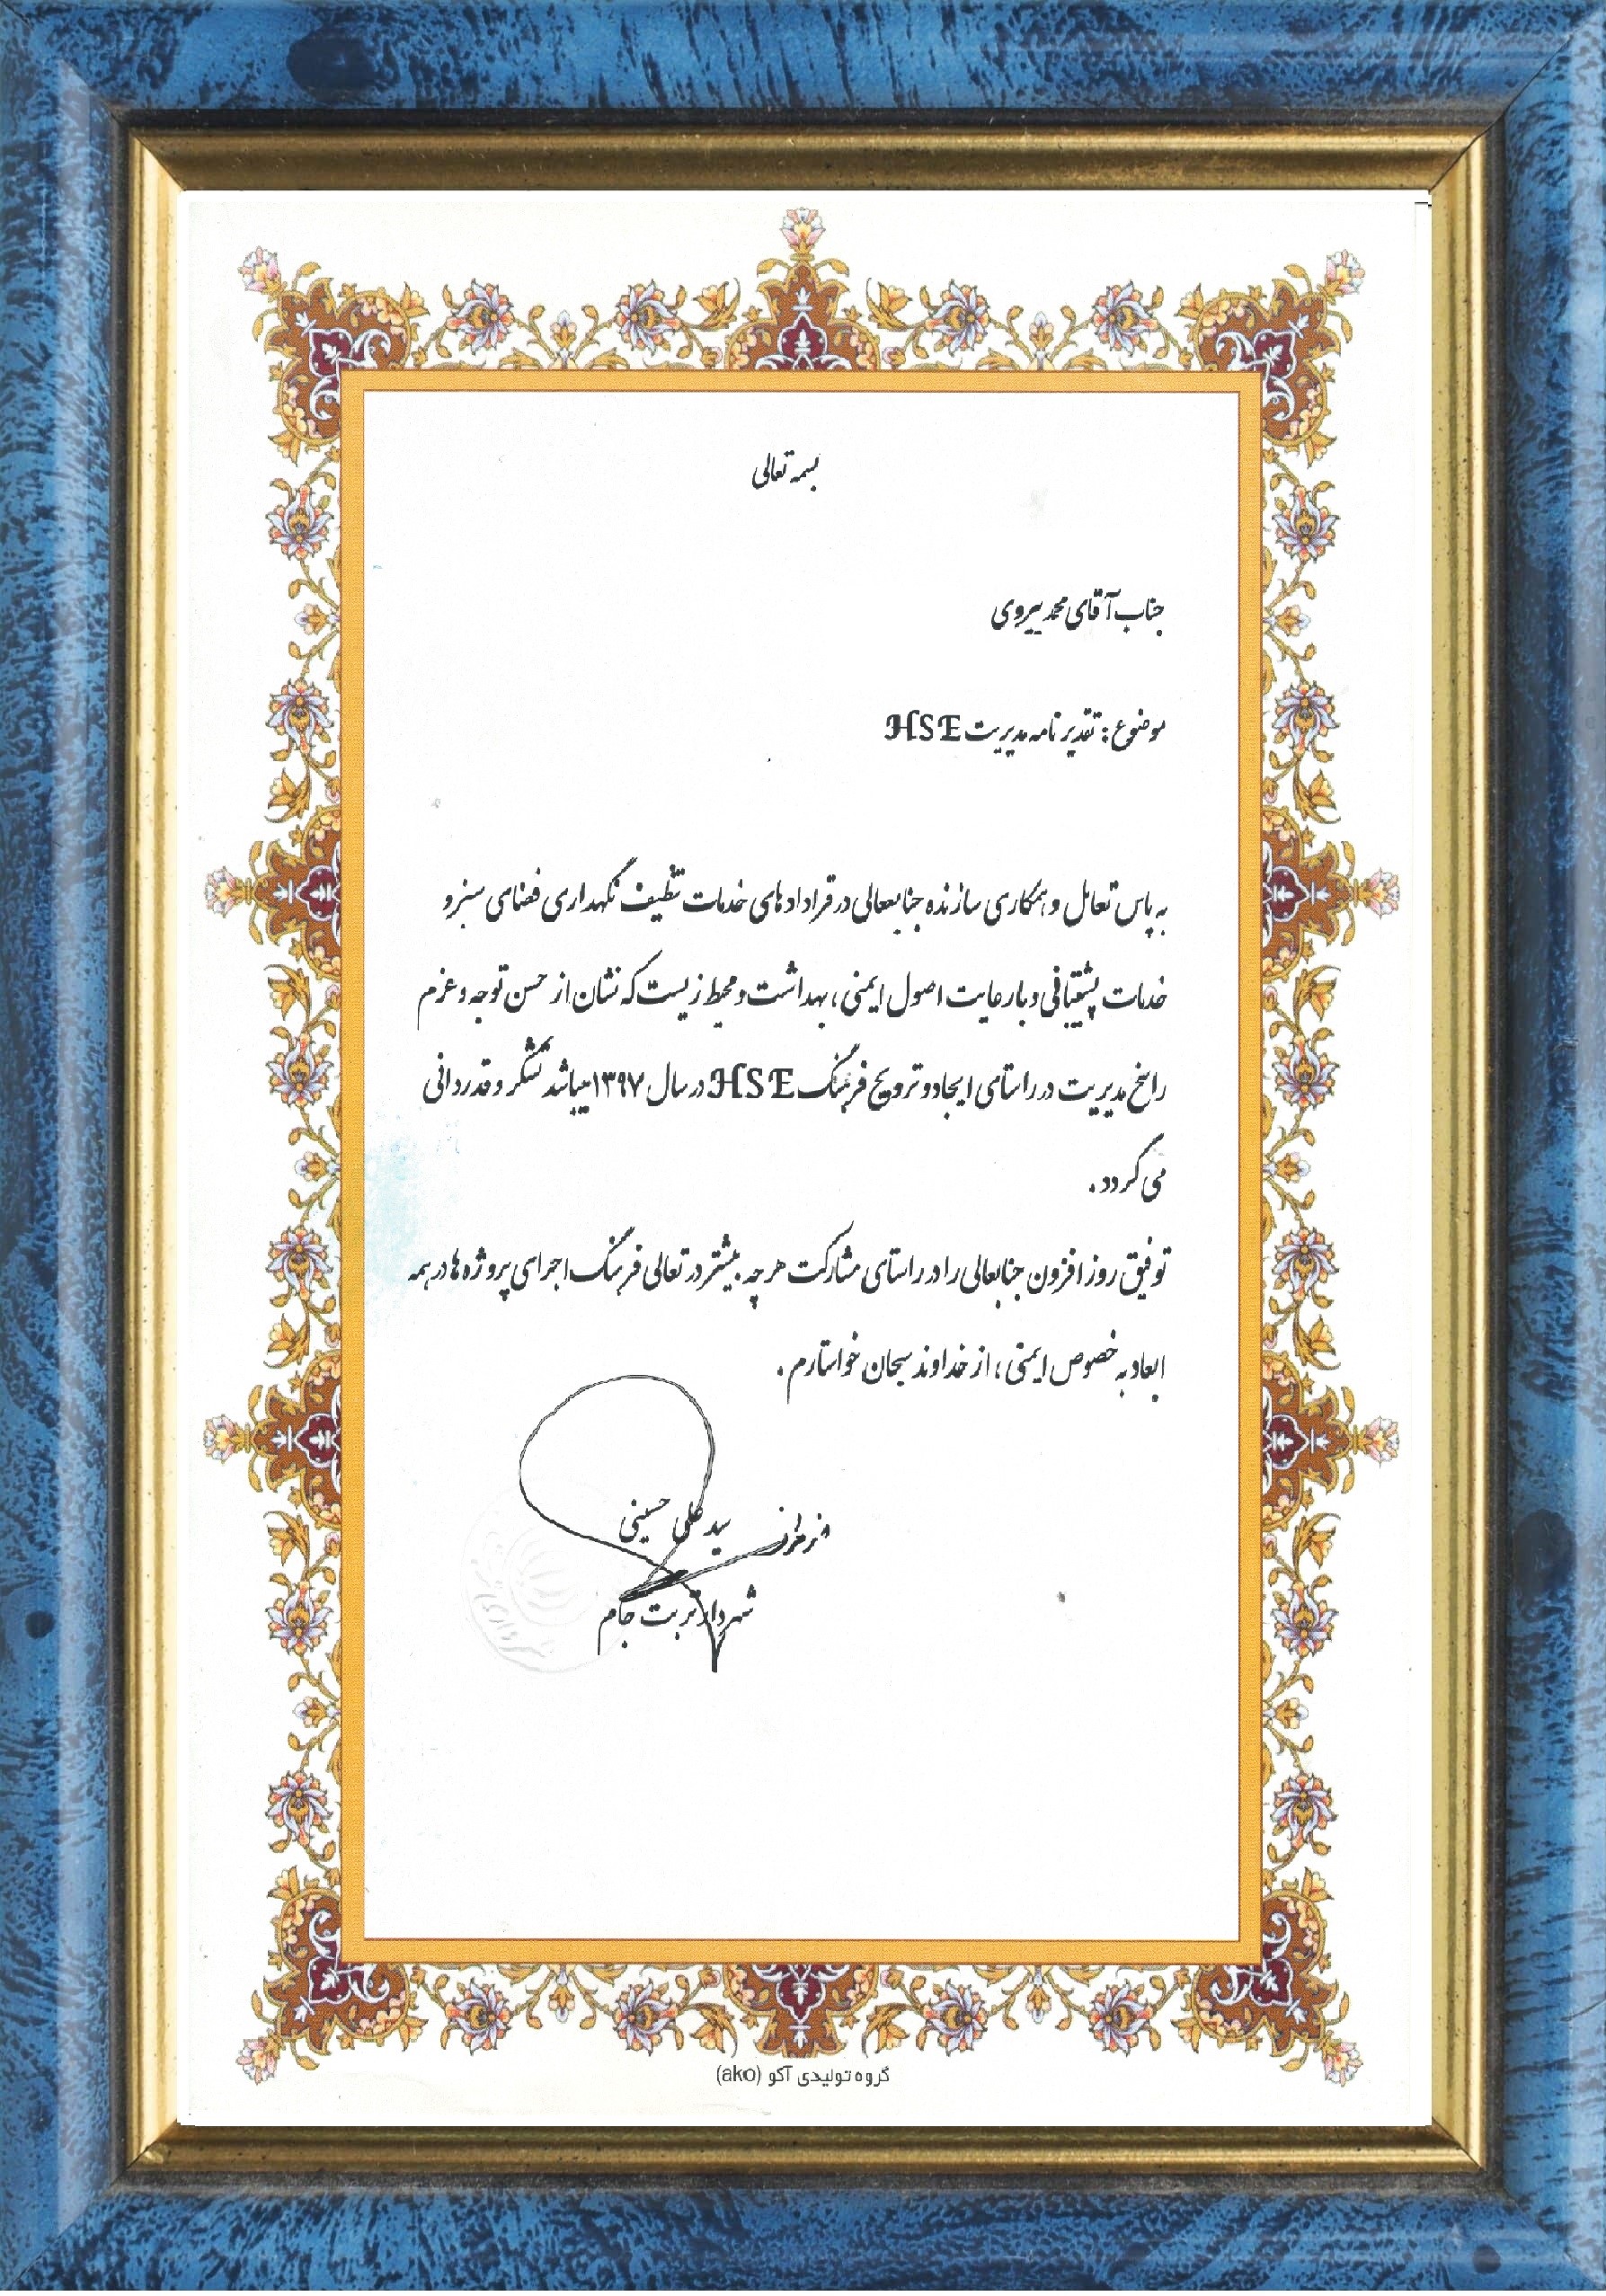 بسمه تعالی
جناب آقای محمد پیروی
موضوع : تقدیر نامه مدیریت HSE
به پاس تعامل و همکاری سازنده جنابعالی در قراداد های خدمات تنظیف نگهداری فضای سبز و
خدمات پشتیبانی و با رعایت اصول ایمنی ، بهداشت و محیط زیست که نشان از حسن توجه و عزم
راسخ مدیریت در راستای ایجاد و ترویج فرهنگ HSE در سال ۱۳۹۷ میباشد تشکر و قدردانی
می گردد .
توفیق روز افزون جنابعالی را در راستای مشارکت هر چه بیشتر در تعالی فرهنگ اجرای پروژه ها در همه
ابعاد به خصوص ایمنی ، از خداوند سبحان خواستارم .
سید علی حسینی
شهردار تربت جام
گروه تولیدی آکو (ako)